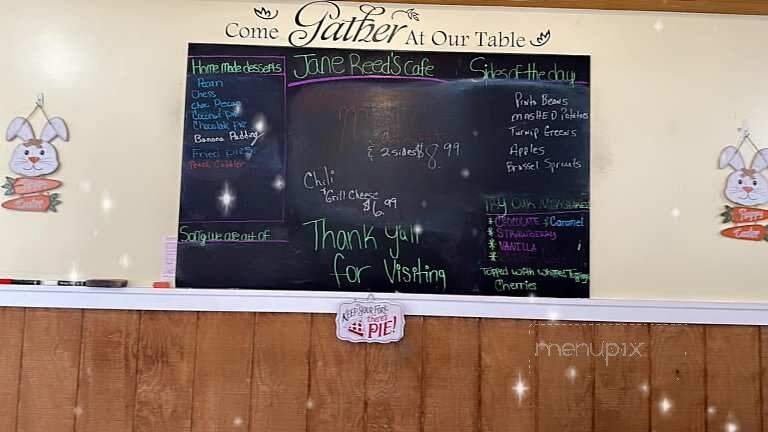 Come Gather At Our Table
Home made desserts
Pecan
Chess
choc Pecan
Coconut Pie
Chocolate Pie
Banana Pudding
Fried pies
Peach Cobbler
Sorry we are out of
Jane Reed's cafe
& 2 sides $8.99
Chili
Grill Cheese
$6.99
Thank y'all
for Visiting
Sides of the day
Pinto Beans
MASHED Potatoes
Turnip Greens
Apples
Brussel Sprouts
TRY OUR MILKSHAKES
* CHOCOLATE * Caramel
* STRAWBERRY
* VANILLA
Topped with whipped
Cherries
KEEP YOUR FORK
there's
PIE!
Happy
Easter
menupix